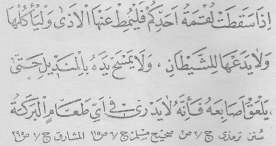 إِذَا سَقَطَتْ لُقْمَةُ أَحَدِكُمْ فَلْيُمِطْ عَنْهَا الْأَذَى وَلْيَأْكُلْهَا
وَلَا يَدَعْهَا لِلشَّيْطَانِ، وَلَا يَمْسَحْ يَدَهُ بِالْمِنْدِيلِ حَتَّى
يَلْعَقَ أَصَابِعَهُ فَإِنَّهُ لَا يَدْرِي فِي أَيِّ طَعَامِهِ الْبَرَكَةُ
سنن ترمذی ج صحیح مسلم ج المشارق ج